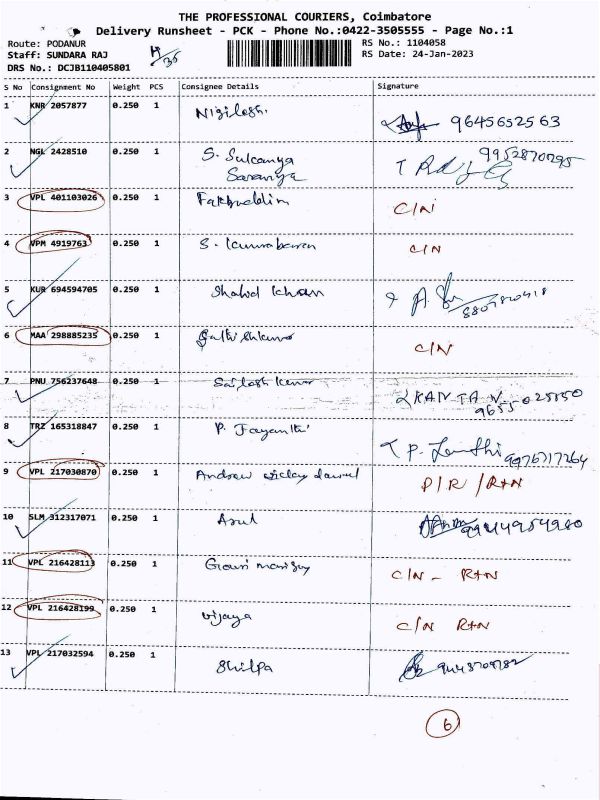 THE PROFESSIONAL COURIERS, Coimbatore
Delivery Runsheet - PCK - Phone No.:0422-3505555 - Page No.:1
Route: PODANUR RS No.: 1104058
Staff: SUNDARA RAJ RS Date: 24-Jan-2023
DRS No.: DCJB110405801
S No Consignment No Weight PCS Consignee Details Signature
1 KNR 2057877 0.250 1 9645652563
2 NGL 2428510 0.250 1 S. Sukanya 9952870295
Saranya
3 VPL 401103026 0.250 1 Fakhruddin C/N
4 VPM 4919763 0.250 1 C/N
5 KUR 694594705 0.250 1 Shahid Khan
6 MAA 298885235 0.250 1 C/N
7 PNU 756237648 0.250 1
8 TRZ 165318847 0.250 1 P. Jayanthi 9976717264
9 VPL 217030870 0.250 1 Andrew D/R / R+N
10 SLM 312317071 0.250 1 Arul
11 VPL 216428113 0.250 1 C/N - R+N
12 VPL 216428199 0.250 1 vijaya C/N R+N
13 VPL 217032594 0.250 1 Shilpa
6